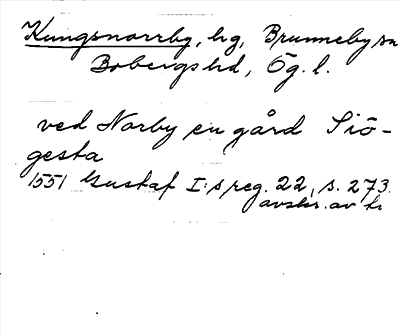 Kungsnorrby, hg, Brunneby sn
Bobergs hd, Ög. l.
ved Norby en gård Siö-
gesta
1551 Gustaf I:s reg. 22, s. 273.
avskr. av